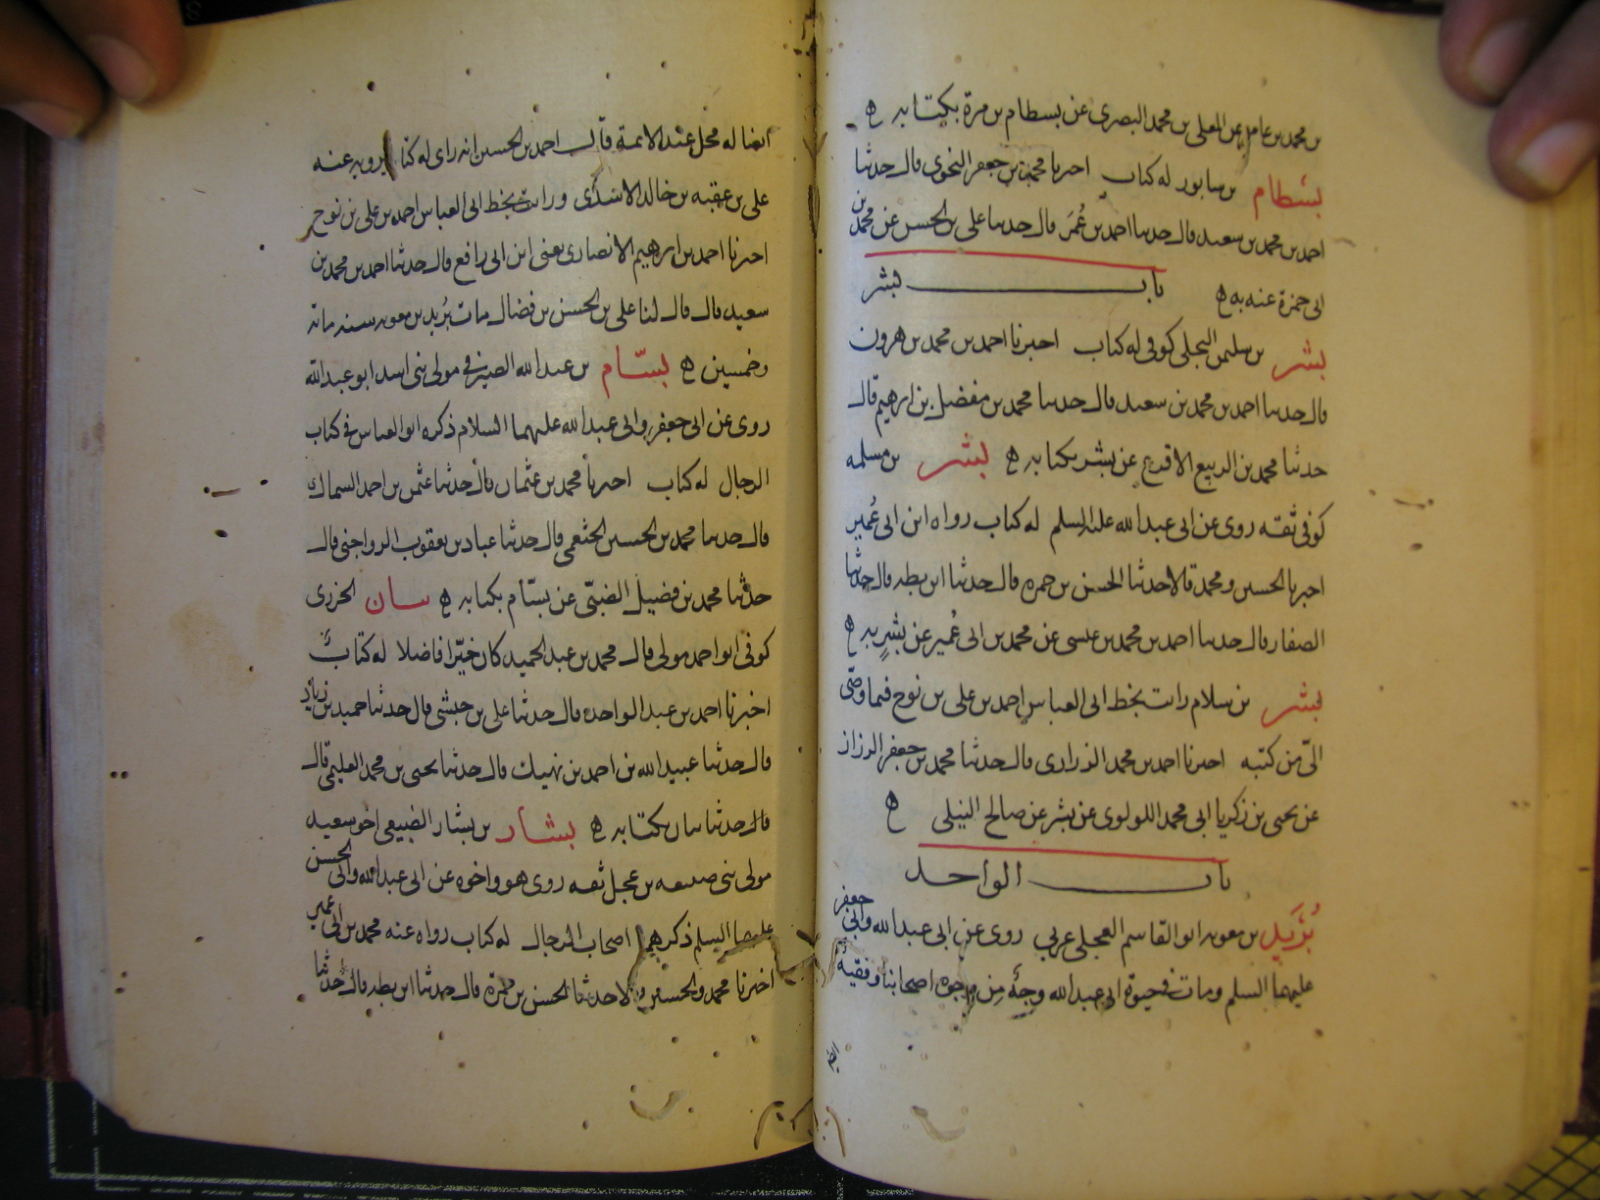 بن محمد بن عامل عن المعلى بن محمد البصرى عن بسطام بن مرة بكتابه ه
بسطام بن سابور له كتاب اخبرنا محمد بن جعفر النحوى قال حدثنا
احمد بن محمد بن سعيد قال حدثنا احمد بن عُمَر قال حدثنا على بن الحسن عن محمد بن
ابى حمزة عنه به ه
باب بشر
بشر بن سليمن البجلى كوفى له كتاب اخبرنا احمد بن محمد بن هرون
قال حدثنا احمد بن محمد بن سعيد قال حدثنا محمد بن مفضل بن ابرهيم قال
حدثنا محمد بن الربيع الاقرع عن بشر بكتابه ه بشر بن مسلمه
كوفى ثقه روى عن ابى عبد الله عليه السلم له كتاب رواه ابن ابى عُمير
اخبرنا الحسين ومحمد قالا حدثنا الحسن بن حمزه قال حدثنا ابن بطه قال حدثنا
الصفار قال حدثنا احمد بن محمد بن عيسى عن محمد بن ابى عُمير عن بشرٍ به ه
بشر بن سلام رايت بخط ابى العباس احمد بن على بن نوح فيما وصّى
الىّ من كتبه اخبرنا احمد بن محمد الزرارى قال حدثنا محمد بن جعفر الرزاز
عن يحيى بن زكريا ابى محمد اللولوى عن بشر عن صالح النيلى ه
باب الواحد
بُرَيد بن معويه ابو القاسم العجلى عربي روى عن ابى عبد الله وابى جعفر
عليهما السلم ومات فى حيوة ابى عبد الله وجهٌ من وجوه اصحابنا وفقيهٌ
ايضا
ايضا له محل عند الائمة قال احمد بن الحسين انه راى له كتابا يرويه عنه
على بن عقبه بن خالد الاسَدى ورايت بخط ابى العباس احمد بن على بن نوح
اخبرنا احمد بن ابرهيم الانصارى يعنى ابن ابى رافع قال حدثنا احمد بن محمد بن
سعيد قال قال لنا على بن الحسن بن فضال مات بُريد بن معويه سنه مائه
وخمسين ه بسّام بن عبد الله الصيرفى مولى بنى اسد ابو عبد الله
روى عن ابى جعفر وابى عبد الله عليهما السلام ذكره ابو العباس فى كتاب
الرجال له كتاب اخبرنا محمد بن عثمان قال حدثنا عثمن بن احمد السماك
قال حدثنا محمد بن الحسين الخثعمى قال حدثنا عباد بن يعقوب الرواجنى قال
حدثنا محمد بن فضيل الضبّى عن بسّام بكتابه ه بيان الجزرى
كوفى ابو احمد مولى قال محمد بن عبد الحميد كان خيّرا فاضلا له كتابٌ
اخبرنا احمد بن عبد الواحد قال حدثنا على بن حبشى قال حدثنا حميد بن زياد
قال حدثنا عبيد الله بن احمد بن نهيك قال حدثنا يحيى بن محمد العليمى قال
قال حدثنا بيان بكتابه ه بشار بن بشار الضبيعى اخو سعيد
مولى بنى ضبيعه بن عجل ثقه روى هو واخوه عن ابى عبد الله وابى الحسن
عليهما السلم ذكرهما اصحاب الرجال له كتاب رواه عنه محمد بن ابى عمير
اخبرنا محمد والحسين قالا حدثنا الحسن بن حمزة قال حدثنا ابن بطه قال حدثنا